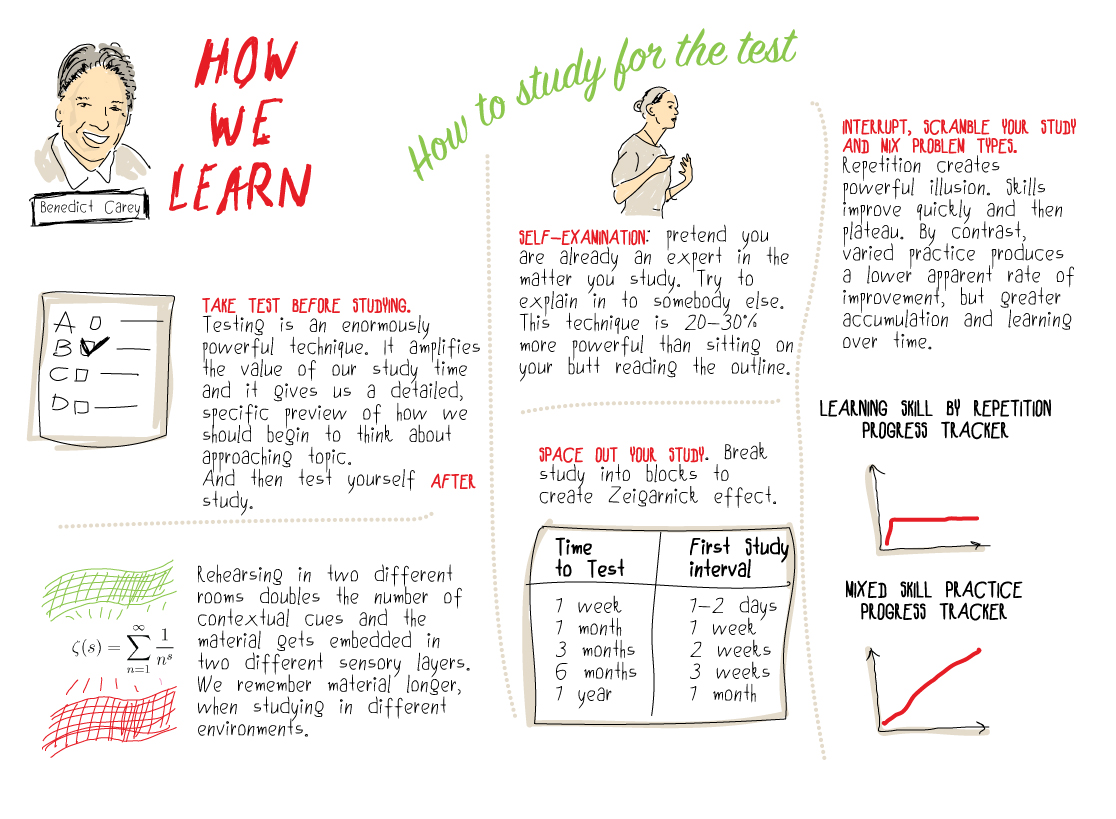 HOW
WE
LEARN
Benedict Carey
How to study for the test
TAKE TEST BEFORE STUDYING.
Testing is an enormously
powerful technique. It amplifies
the value of our study time
and it gives us a detailed,
specific preview of how we
should begin to think about
approaching topic.
And then test yourself AFTER
study.
A
B
C
D
Rehearsing in two different
rooms doubles the number of
contextual cues and the
material gets embedded in
two different sensory layers.
We remember material longer,
when studying in different
environments.
ζ(s) = ∑_{n=1}^{∞} 1/n^s
SELF-EXAMINATION: pretend you
are already an expert in the
matter you study. Try to
explain in to somebody else.
This technique is 20-30%
more powerful than sitting on
your butt reading the outline.
SPACE OUT YOUR STUDY. Break
study into blocks to
create Zeigarnick effect.
Time to Test | First Study interval
1 week | 1-2 days
1 month | 1 week
3 months | 2 weeks
6 months | 3 weeks
1 year | 1 month
INTERRUPT, SCRAMBLE YOUR STUDY
AND MIX PROBLEM TYPES.
Repetition creates
powerful illusion. Skills
improve quickly and then
plateau. By contrast,
varied practice produces
a lower apparent rate of
improvement, but greater
accumulation and learning
over time.
LEARNING SKILL BY REPETITION
PROGRESS TRACKER
MIXED SKILL PRACTICE
PROGRESS TRACKER